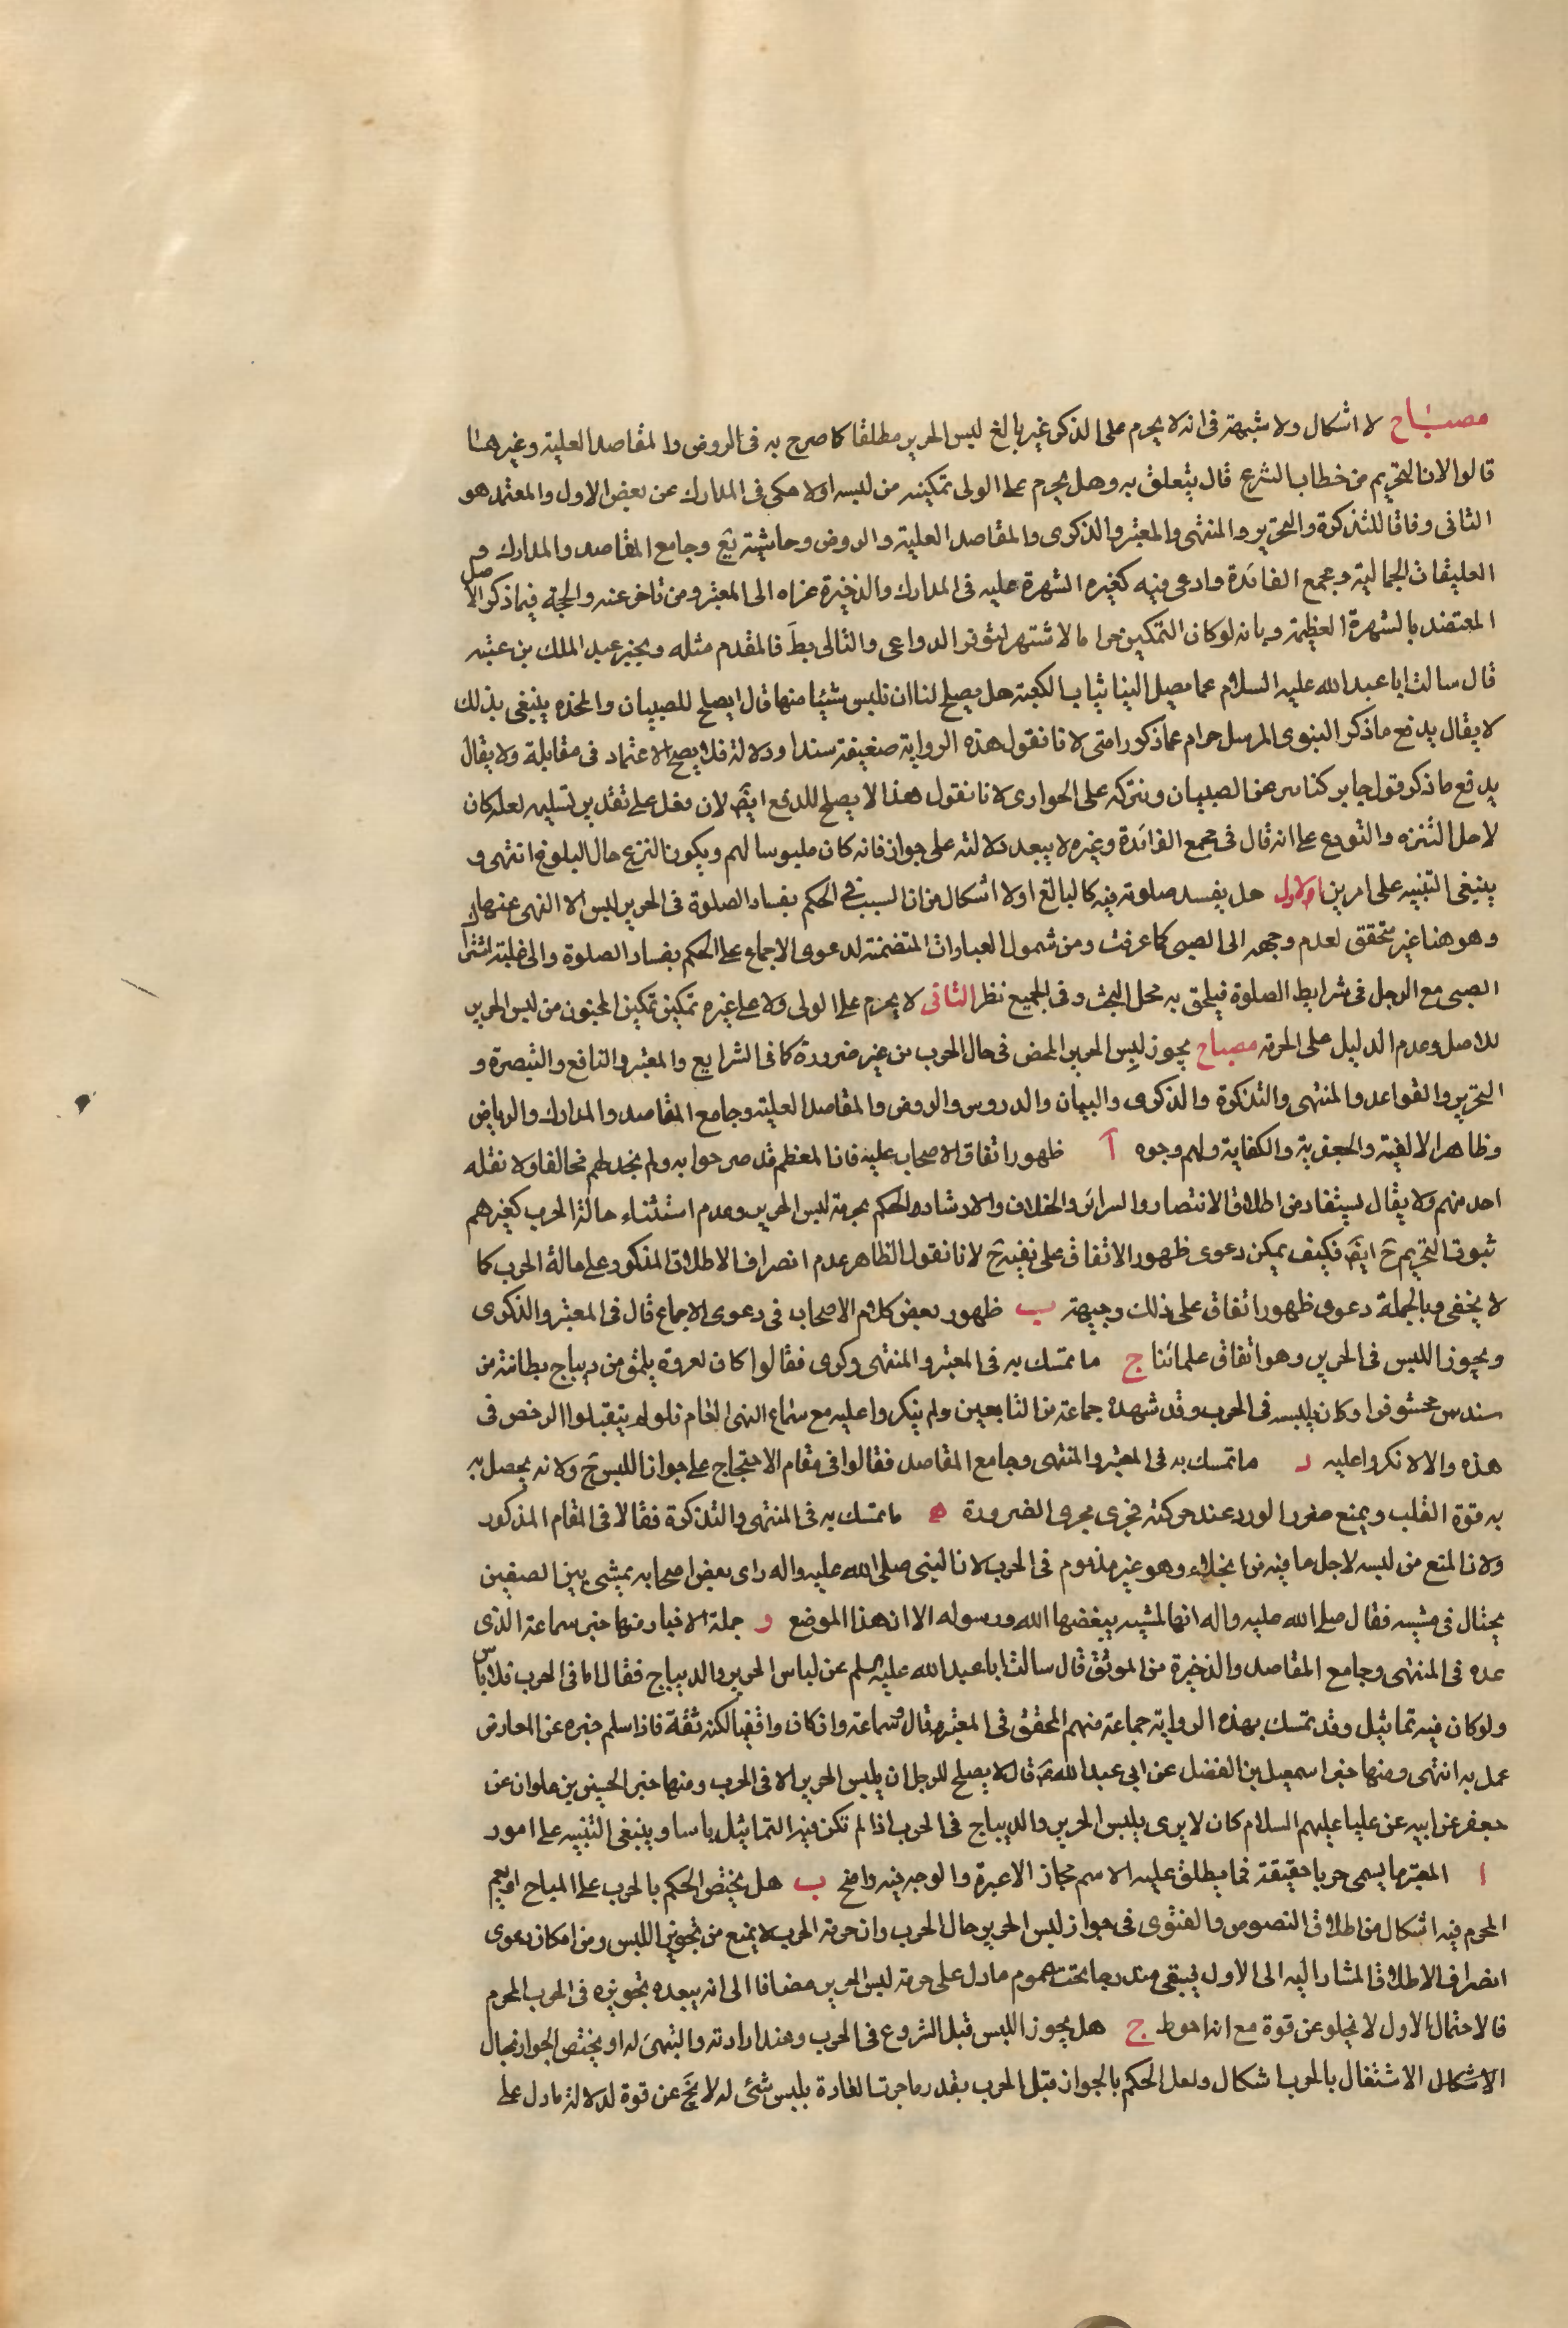 مصباح لا اشكال ولا شبهة فى انه لا يحرم على الذكر غير بالغ لبس الحرير مطلقا كما صرح به فى الروض والمقاصد العلية وغيرهما
قالوا لان التحريم من خطاب الشرع قال يتعلق به وهل يحرم على الولى تمكينه من لبسه اولا حكى فى المدارك عن بعض الاول والمعتمد هو
الثانى وفاقا للتذكرة والتحرير والمنتهى والمعتبر والذكرى والمقاصد العلية والروض وحاشية يع وجامع المقاصد والمدارك و
العليقات الجمالية ومجمع الفائدة وادعى فيه كغيره الشهرة عليه فى المدارك والذخيرة عزاه الى المعتبر ومن تاخر عنه والحجة فيما ذكر الاصل
المعتضد بالشهرة العظيمة وبانه لو كان التمكين حراما لاشتهر لتوفر الدواعى والتالى بط فالمقدم مثله وبخبر عبد الملك بن عتبه
قال سالت ابا عبد الله عليه السلام عما يصل الينا ثياب الكعبة هل يصلح لنا ان نلبس شيئا منها قال يصلح للصبيان والمخذه ينبغى بذلك
لا يقال يدفع ما ذكر النبوى المرسل حرام على ذكور امتى لانا نقول هذه الرواية ضعيفة سندا ودلالة فلا يصح الاعتماد فى مقابلة ولا يقال
يدفع ما ذكر قول جابر كنا نزعه عن الصبيان ونتركه على الجوارى لانا نقول هذا لا يصلح للدفع ايضَ لان فعل على تقدير تسليمه لعله كان
لاجل التنزه والتورع على انه قال فى مجمع الفائدة وغيره لا يبعد دلالته على جواز فانه كان ملبوسا لهم ويكون النزع حال البلوغ انتهى و
ينبغى التنبيه على امرين الاول هل يفسد صلوته فيه كالبالغ اولا اشكال من ان السبب فى الحكم بفساد الصلوة فى الحرير ليس الا النهى عنها
وهو هنا غير متحقق لعدم وجهه الى الصبى كما عرفت ومن شمول العبارات المتضمنة لدعوى الاجماع على الحكم بفساد الصلوة والى غلبة اشتراك
الصبى مع الرجل فى شرايط الصلوة فيلحق به محل البحث وفى الجميع نظر الثانى لا يحرم على الولى ولا على غيره تمكين تمكين المجنون من لبس الحرير
للاصل وعدم الدليل على الحرمة مصباح يجوز لبس الحرير المحض فى حال الحرب من غير ضرورة كما فى الشرايع والمعتبر والنافع والتبصرة و
التحرير والقواعد والمنتهى والتذكرة والذكرى والبيان والدروس والروض والمقاصد العلية وجامع المقاصد والمدارك والرياض
وظاهر الالفية والجعفرية والكفاية ولهم وجوه آ ظهور اتفاق الاصحاب عليه فان المعظم قد صرحوا به ولم نجد لهم مخالفا ولا نقله
احد منهم ولا يقال يستفاد من اطلاق الانتصار والسرائر والخلاف والارشاد الحكم بحرمة لبس الحرير وعدم استثناء حالة الحرب كغيرهم
ثبوت التحريم حَ ايضَ فكيف يمكن دعوى ظهور الاتفاق على نفيه حَ لانا نقول الظاهر عدم انصراف الاطلاق المذكور على حالة الحرب كما
لا يخفى وبالجملة دعوى ظهور اتفاق على ذلك وجيهة ب ظهور بعض كلام الاصحاب فى دعوى الاجماع قال فى المعتبر والذكرى
ويجوز اللبس فى الحرير وهو اتفاق علمائنا ج ما تمسك به فى المعتبر والمنتهى وكرى فقالوا كان لعروة يلمق من ديباج بطانته من
سندس محشو قزا وكان يلبسه فى الحرب وقد شهده جماعة من التابعين ولم ينكروا عليه مع سماع النهى العام فلو لم يتقبلوا الرخص فى
هذه والا لانكروا عليه د ما تمسك به فى المعتبر والمنتهى وجامع المقاصد فقالوا فى مقام الاحتجاج على جواز اللبس حَ ولانه يحصل به
به قوة القلب ويمنع ضرر الورد عند حركته فجرى مجرى الضرورة ه ما تمسك به فى المنتهى والتذكرة فقالا فى المقام المذكور
ولان المنع من لبسه لاجل ما فيه من الخيلاء وهو غير مذموم فى الحرب لان النبى صلى الله عليه واله راى بعض اصحابه يمشى بين الصفين
يختال فى مشيته فقال صلى الله عليه واله انها لمشية يبغضها الله ورسوله الا ان هذا الموضع و جملة الاخبار منها خبر سماعة الذى
عده فى المنتهى وجامع المقاصد والذخيرة من الموثق قال سالت ابا عبد الله عليه السلم عن لباس الحرير والديباج فقال اما فى الحرب فلا باس
ولو كان فيه تماثيل وقد تمسك بهذه الرواية جماعة منهم المحقق فى المعتبر قال وسماعة وان كان واقفيا لكنه ثقة فاذا سلم خبره عن المعارض
عمل به انتهى ومنها خبر اسمعيل بن الفضل عن ابى عبد الله عَ قال لا يصلح للرجل ان يلبس الحرير الا فى الحرب ومنها خبر الحسين بن علوان عن
جعفر عن ابيه عن عليا عليهم السلام كان لا يرى بلبس الحرير والديباج فى الحرب اذا لم تكن فيه التماثيل باسا وينبغى التنبيه على امور
ا المعتبر ما يسمى حربا حقيقة فما يطلق عليه الاسم مجاز الاعبرة والوجه فيه واضح ب هل يختص الحكم بالحرب على المباح او يعم
المحرم فيه اشكال من اطلاق النصوص والفتوى فى جواز لبس الحرير حال الحرب وان حرمة الحرب لا يمنع من تجويز اللبس ومن امكان دعوى
انصراف الاطلاق المشار اليه الى الاول فيبقى مندرجا تحت عموم ما دل على حرمة لبس الحرير مضافا الى انه يبعده تجويزه فى الحرب المحرم
فالاحتمال الاول لا يخلو عن قوة مع انه احوط ج هل يجوز اللبس قبل الشروع فى الحرب وعند ارادته والتهئ له او يختص الجواز بحال
الاشكال الاشتغال بالحرب اشكال ولعل الحكم بالجواز قبل الحرب بقدر ما جرت العادة بلبس شئ له لا يَخ عن قوة لدلالة ما دل على